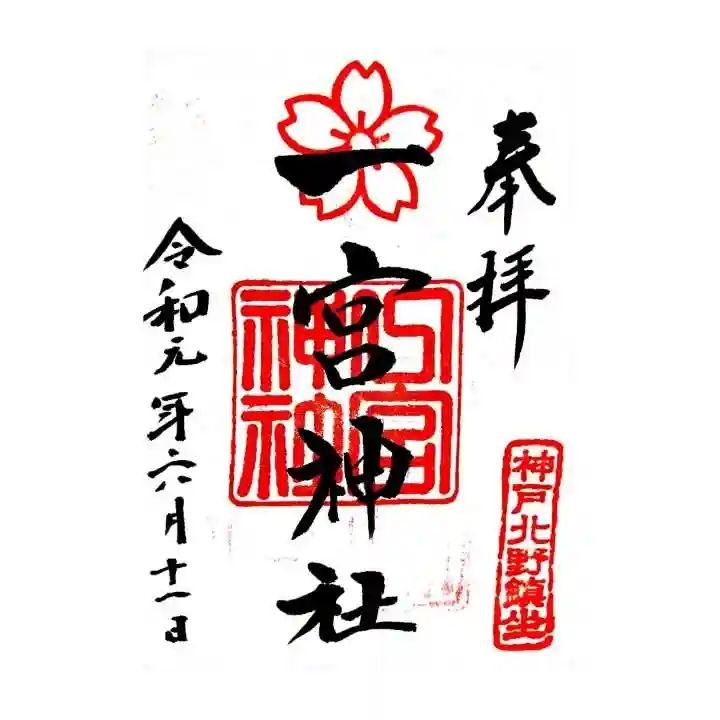 奉拝
神戸北野鎮坐
一宮神社
一宮神社
令和元年六月十一日